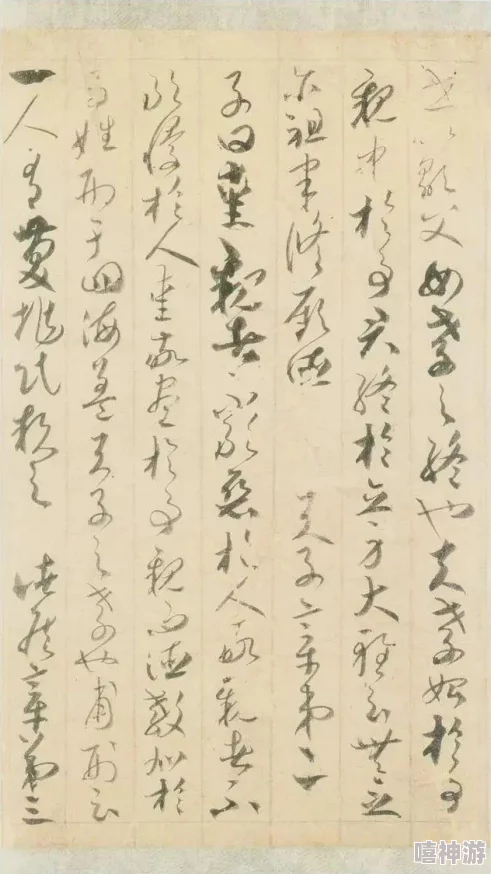 世以顯父母孝之終也夫孝始於事
親中於事君終於立身大雅云無念
尔祖聿脩厥德 天子章第二
子曰愛親者不敢惡於人敬親者不
敢慢於人愛敬盡於事親而德教加於
百姓刑于四海蓋天子之孝也甫刑云
一人有慶兆民賴之 諸侯章第三
嘻神游